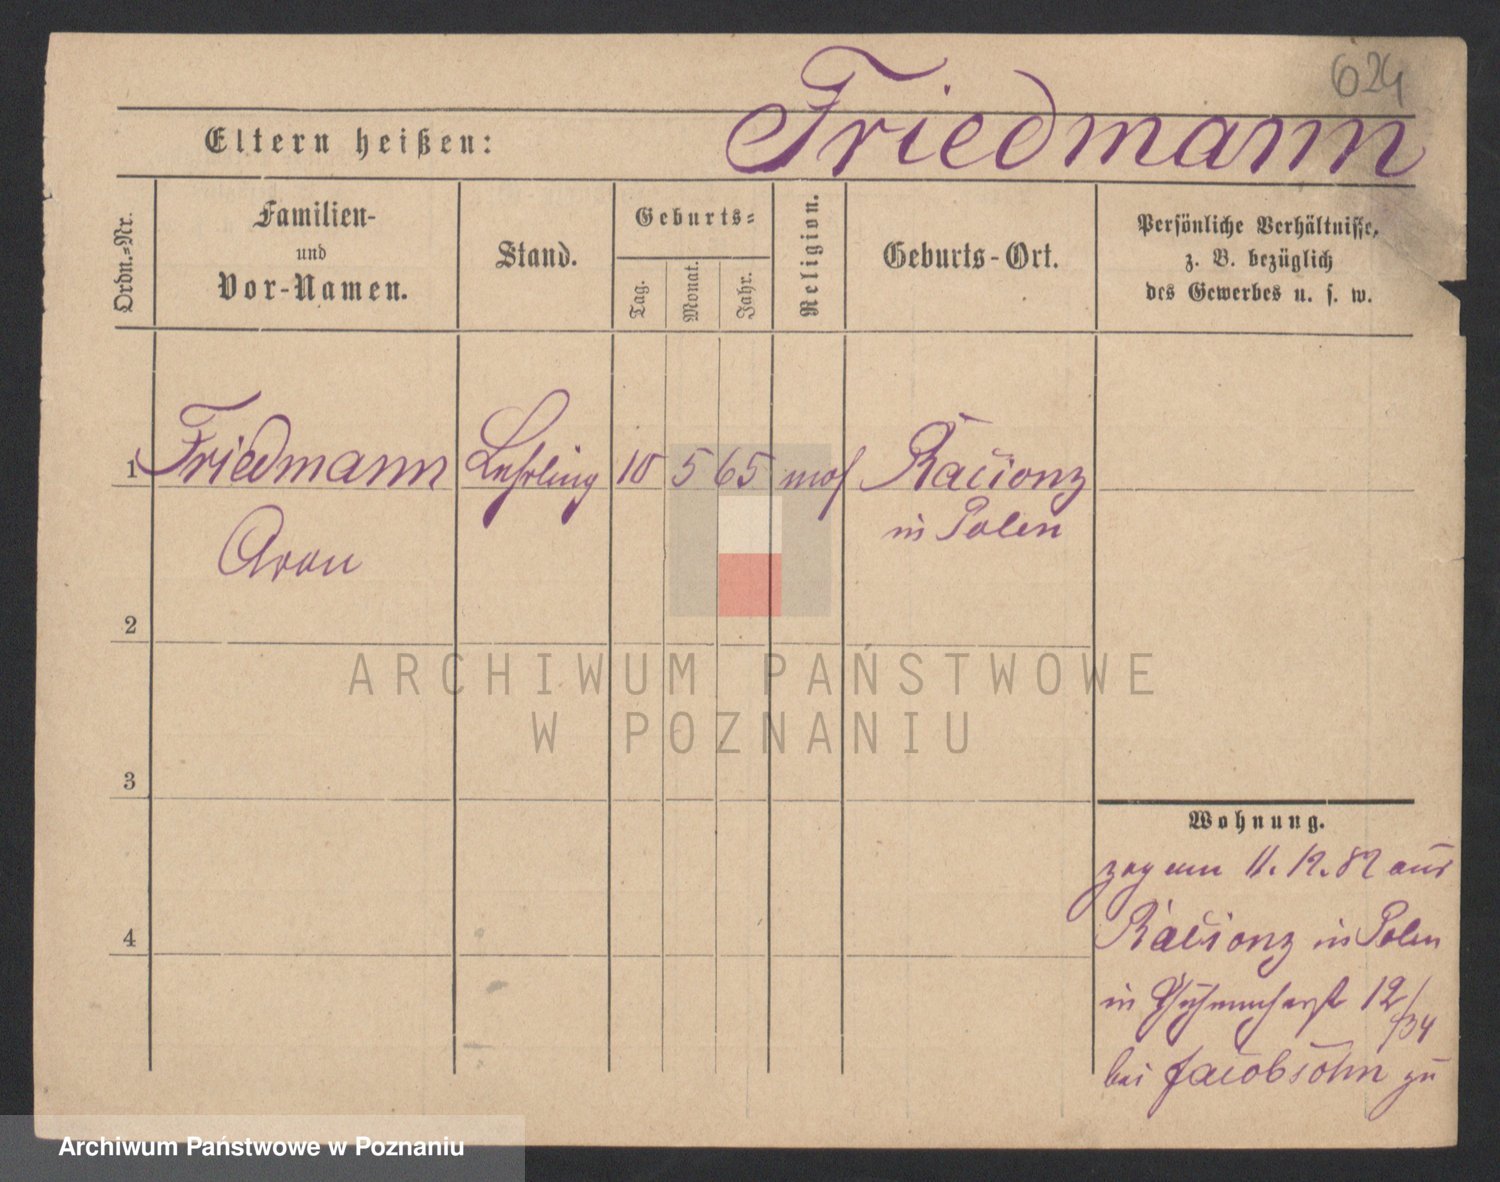 624
Friedmann
Eltern heißen:
Ordn.=Nr.
Familien-
und
Vor-Namen.
Stand.
Geburts=
Tag.
Monat.
Jahr.
Religion.
Geburts-Ort.
Persönliche Verhältnisse,
z. B. bezüglich
des Gewerbes u. s. w.
1 Friedmann Lehrling 10 5 65 mos Racionz
in Polen
Aron
2
ARCHIWUM PAŃSTWOWE
W POZNANIU
3
Wohnung.
zog am 11.12.82 aus
Racionz in Polen
4
in 12/34
bei Jacobsohn zu
Archiwum Państwowe w Poznaniu